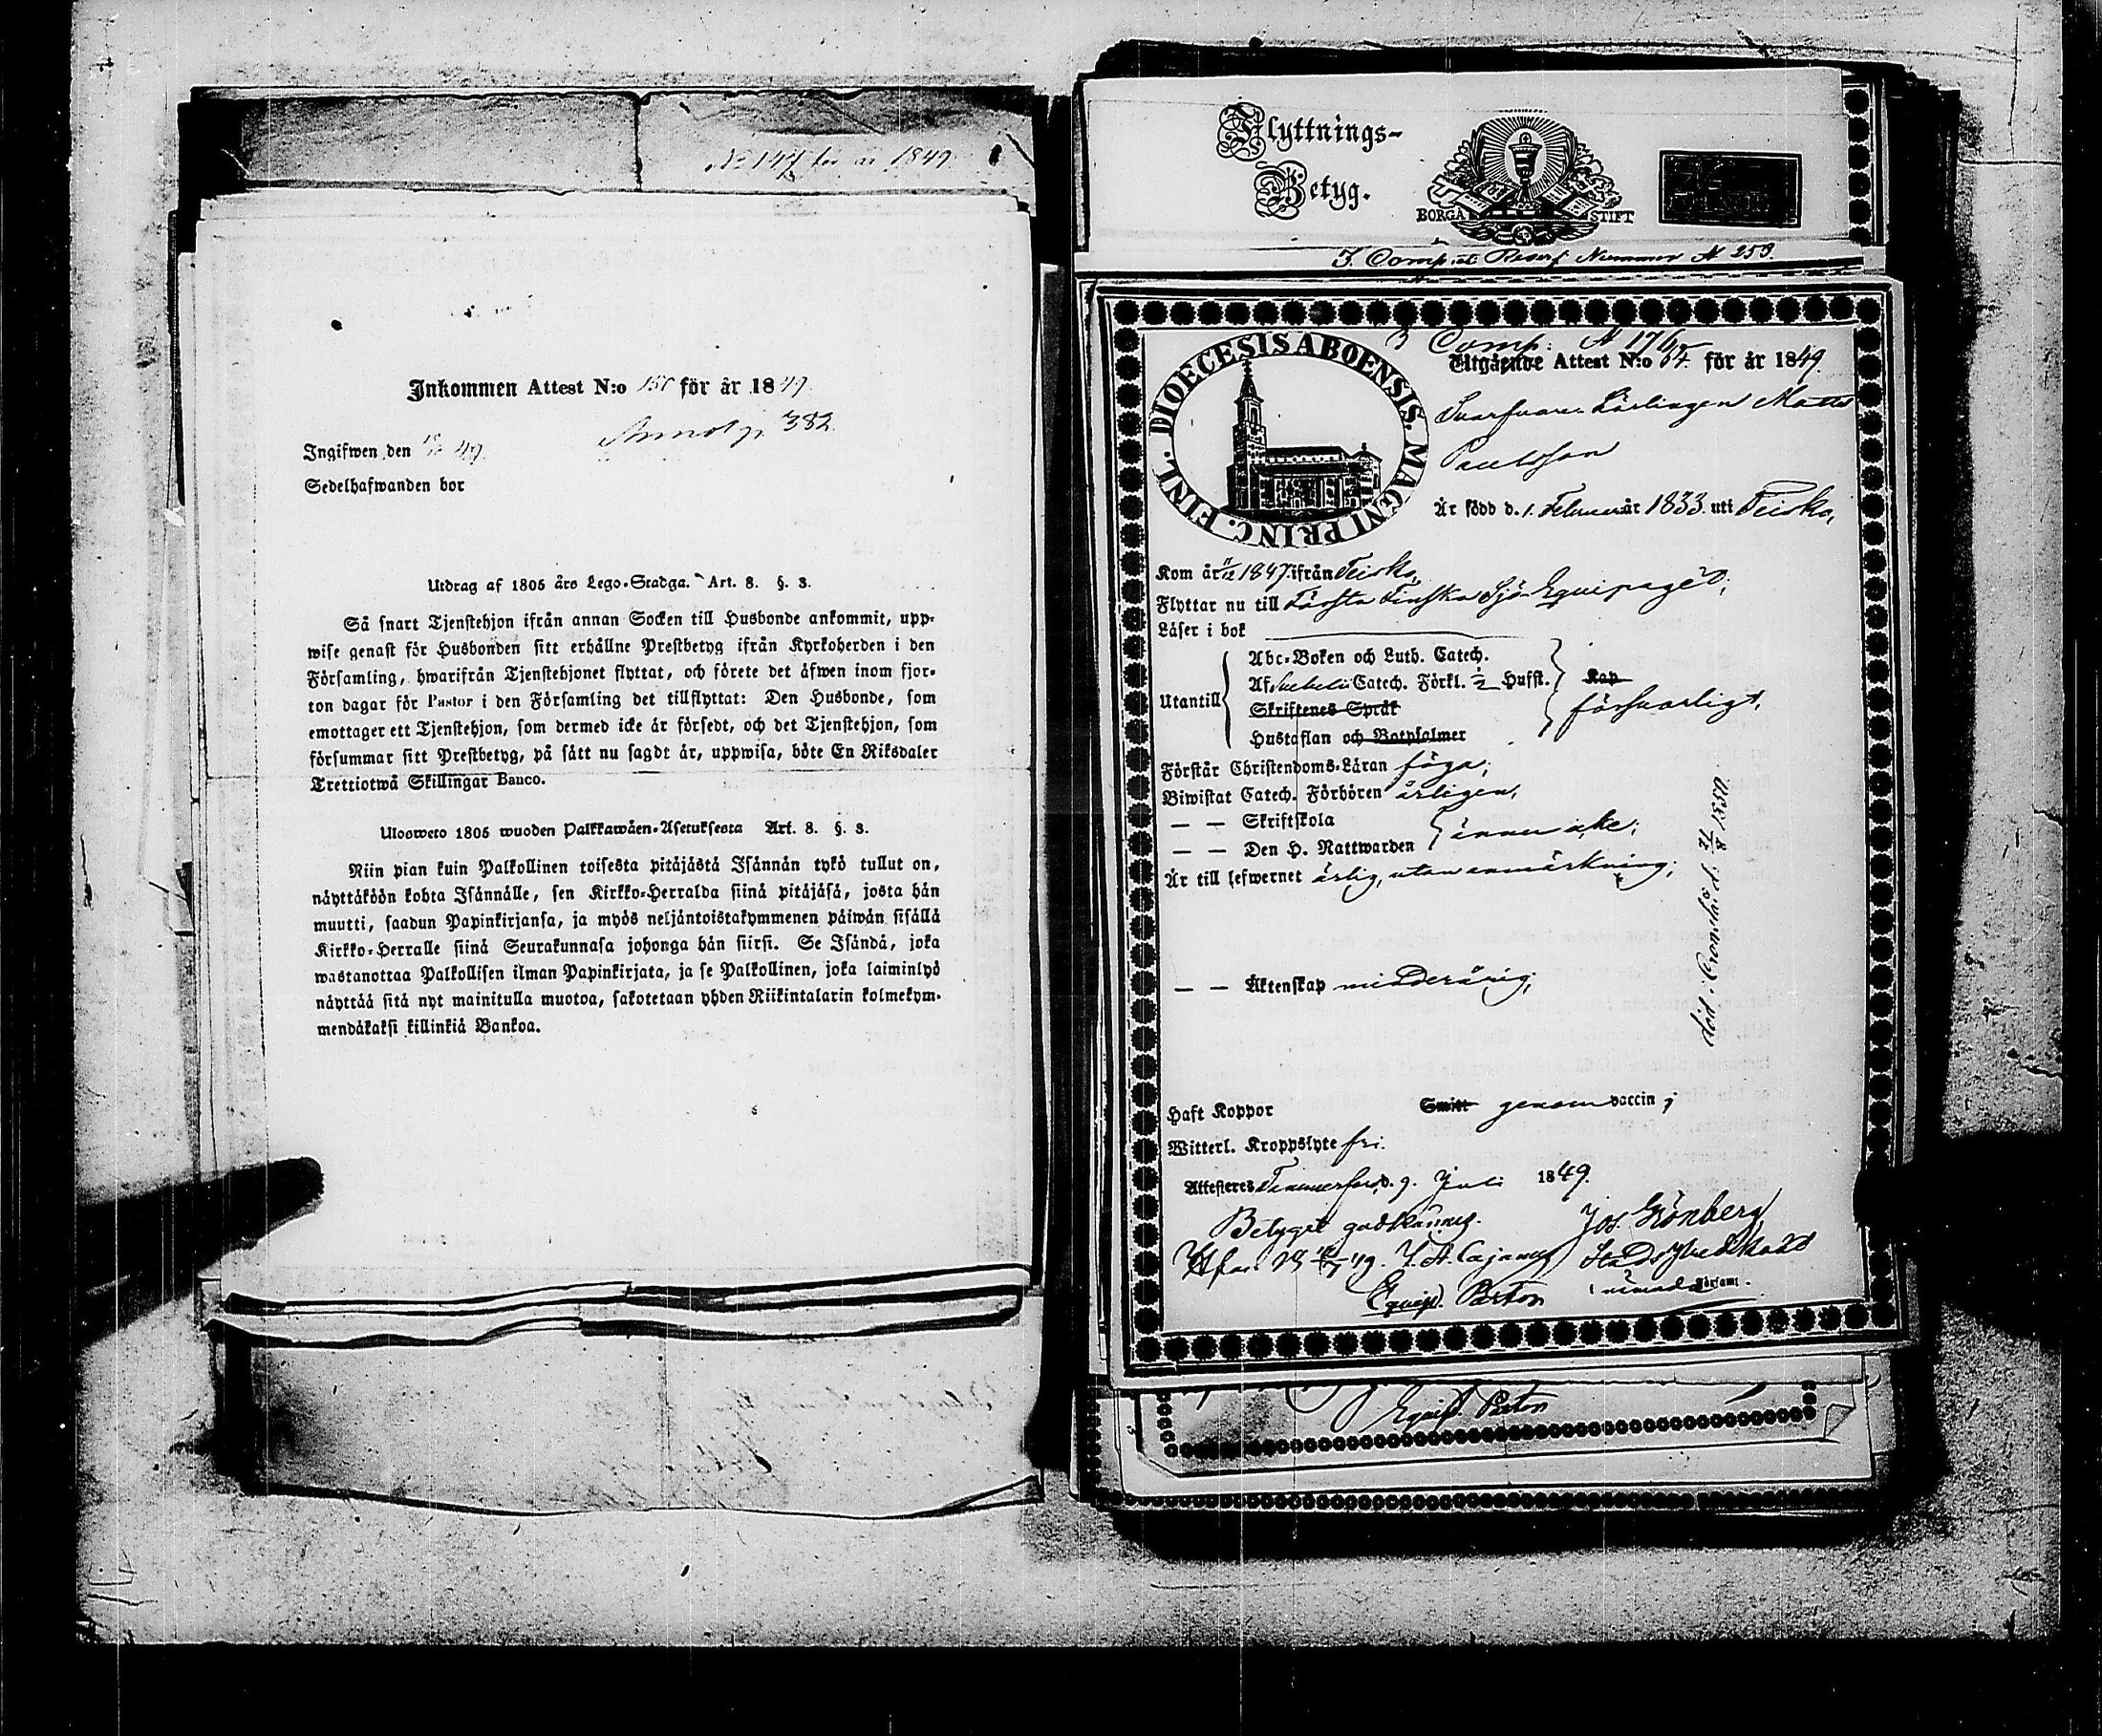 No 144 för år 1849.
Inkommen Attest N:o 150 för år 1849.
382
Ingifwen den 49.
Sedelhafwanden bor
Utdrag af 1805 års Lego-Stadga. Art. 8. §. 3.
Så snart Tjenstehjon ifrån annan Socken till Husbonde ankommit, upp-
wise genast för Husbonden sitt erhållne Prestbetyg ifrån Kyrkoherden i den
Församling, hwarifrån Tjenstehjonet flyttat, och förete det äfwen inom fjor-
ton dagar för Pastor i den Församling det tillflyttat: Den Husbonde, som
emottager ett Tjenstehjon, som dermed icke är försedt, och det Tjenstehjon, som
försummar sitt Prestbetyg, på sätt nu sagdt är, uppwisa, böte En Riksdaler
Trettiotwå Skillingar Banco.
Ulosweto 1805 wuoden Palkkawäen-Asetuksesta Art. 8. §. 3.
Niin pian kuin Palkollinen toisesta pitäjästä Isännän tykö tullut on,
näyttäköön kohta Isännälle, sen Kirkko-Herralda siinä pitäjäsä, josta hän
muutti, saadun Papinkirjansa, ja myös neljäntoistakymmenen päiwän sisällä
Kirkko-Herralle siinä Seurakunnasa johonga hän siirsi. Se Isändä, joka
wastanottaa Palkollisen ilman Papinkirjata, ja se Palkollinen, joka laiminlyö
näyttää sitä nyt mainitulla muotoa, sakotetaan yhden Riikintalarin kolmekym-
mendäkaksi killinkiä Bankoa.
Flyttnings-
Betyg.
BORGÅ STIFT
3. Comp. Reserf Nummer N 253.
3 Comp: N 176
Utgående Attest N:o 54. för år 1849.
DIOECESIS ABOENSIS. MAGNI PRINC. FINL.
Svarfvare Lärlingen Matts
Paulsson
Är född d. 1. Februari år 1833. uti Teisko,
Kom år 1847. ifrån Teisko,
Flyttar nu till Första Finska Sjö-Equipaget;
Läser i bok
Utantill
Abc-Boken och Luth. Catech.
Af Svebelii Catech. Förkl. ½ Husst.
Skriftenes Språk
Hustaflan och Botpsalmer
Kap
försvarligt,
Förstår Christendoms-Läran föga;
Biwistat Catech. Förhören årligen,
— — Skriftskola
— — Den H. Nattwarden
ännu icke;
Är till lefwernet ärlig, utan anmärkning;
— — Äktenskap minderårig;
död i Cronstad d. 21/8 1850.
Haft Koppor Smitt genom vaccin;
Witterl. Kroppslyte fri.
Attesteres Tammerfors d. 9. Juli 1849.
Betyget godkännes. Jos. Grönberg
H:fors 49. J. A. Cajanus
Equip. Pastor Församl.
Equip. Pastor